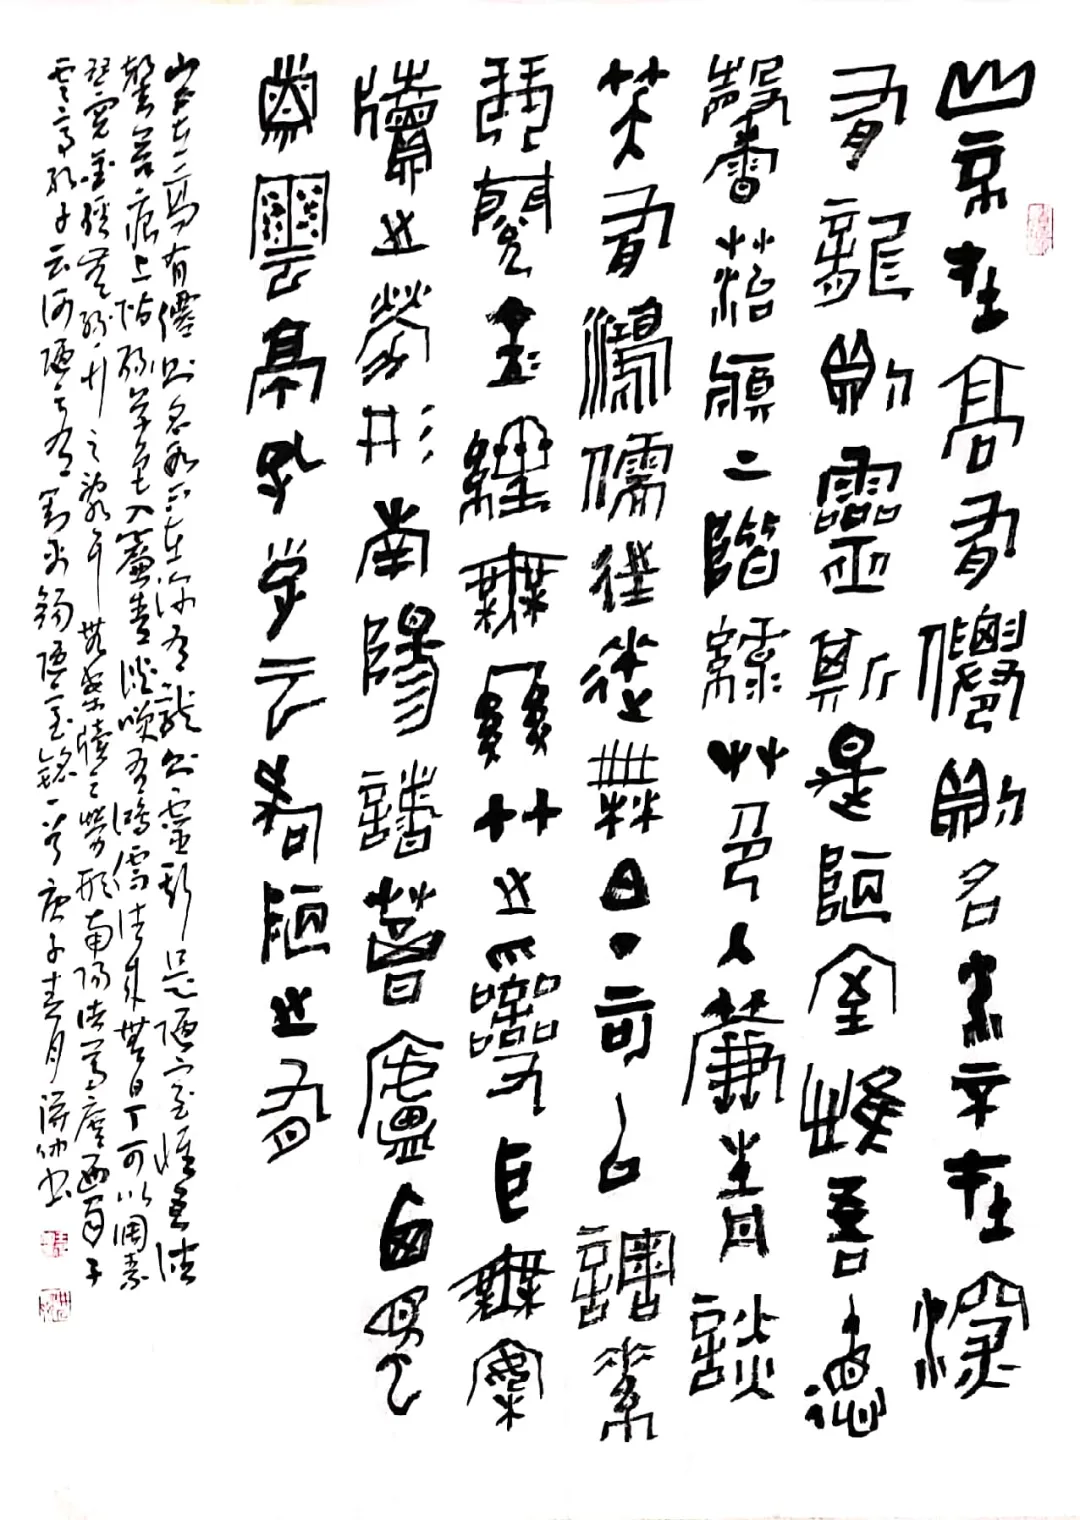 山不在高有僊則名水不在深
有龍則靈斯是陋室惟吾德
馨苔痕上階綠艸色入簾青談
笑有鴻儒往來無白丁可以調素
琴閱金經無絲竹之亂耳無案
牘之勞形南陽諸葛廬西蜀
子雲亭孔子云何陋之有
山不在高有僊則名水不在深有龍則靈斯是陋室惟吾德
馨苔痕上階綠草色入簾青談笑有鴻儒往來無白丁可以調素
琴閱金經無絲竹之亂耳無案牘之勞形南陽諸葛廬西蜀子
雲亭孔子云何陋之有劉禹錫陋室銘一首庚子春月書